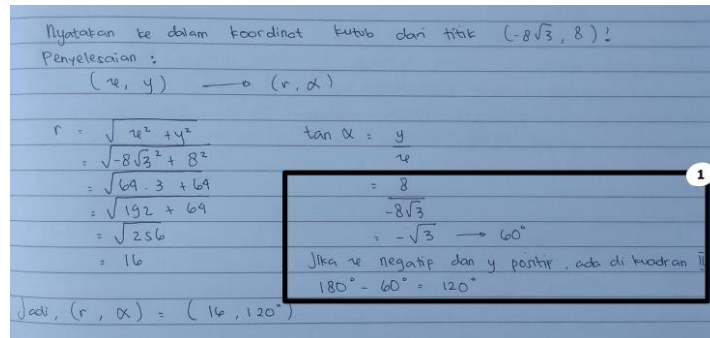 Nyatakan ke dalam koordinat kutub dari titik (-8√3, 8)!
Penyelesaian :
(x, y) → (r, α)
r = √x² + y²
= √-8√3² + 8²
= √64 . 3 + 64
= √192 + 64
= √256
= 16
tan α = y/x
1
= 8/-8√3
= -√3 → 60°
Jika x negatif dan y positif, ada di kuadran II
180° - 60° = 120°
Jadi, (r, α) = (16, 120°)